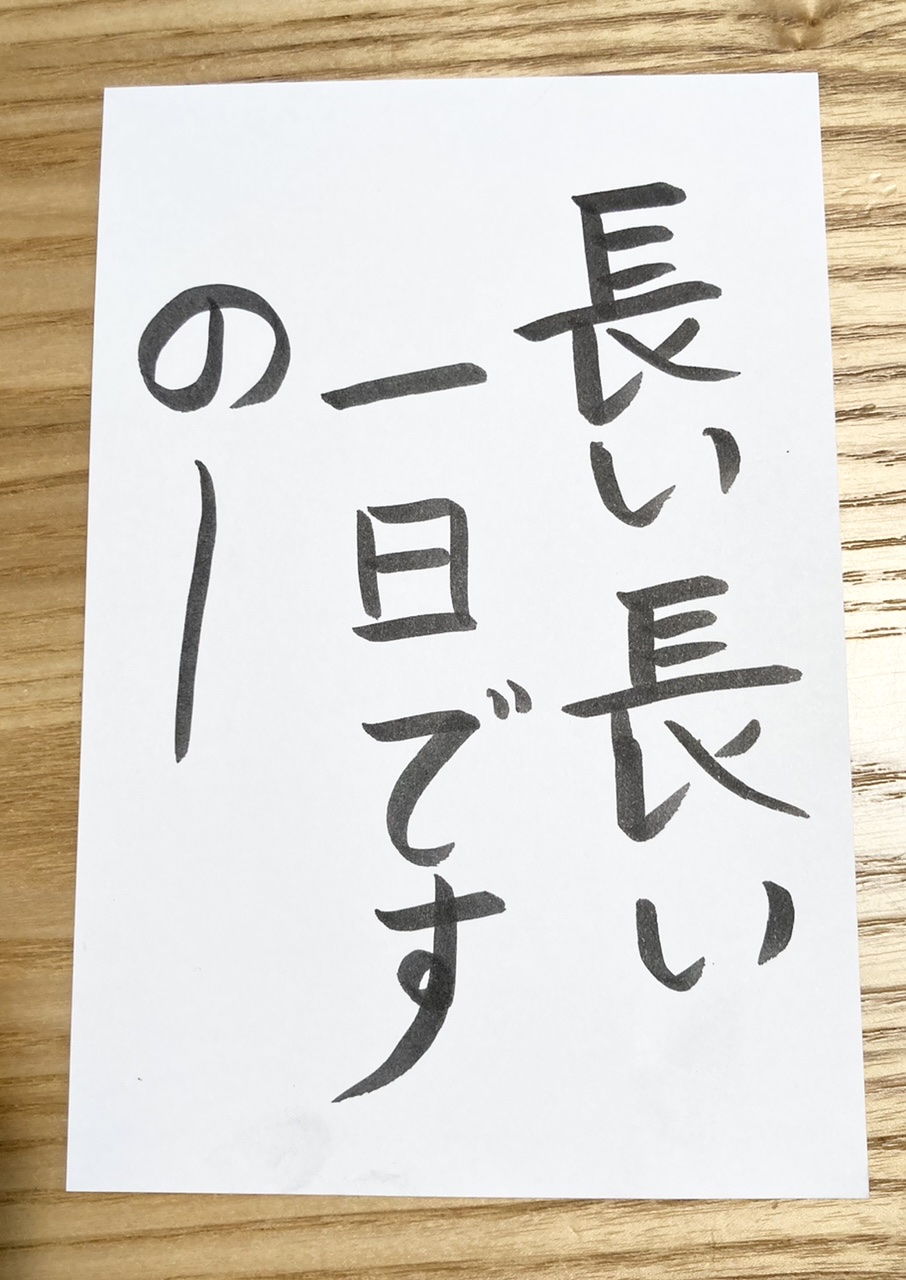 長い長い
一日です
のー